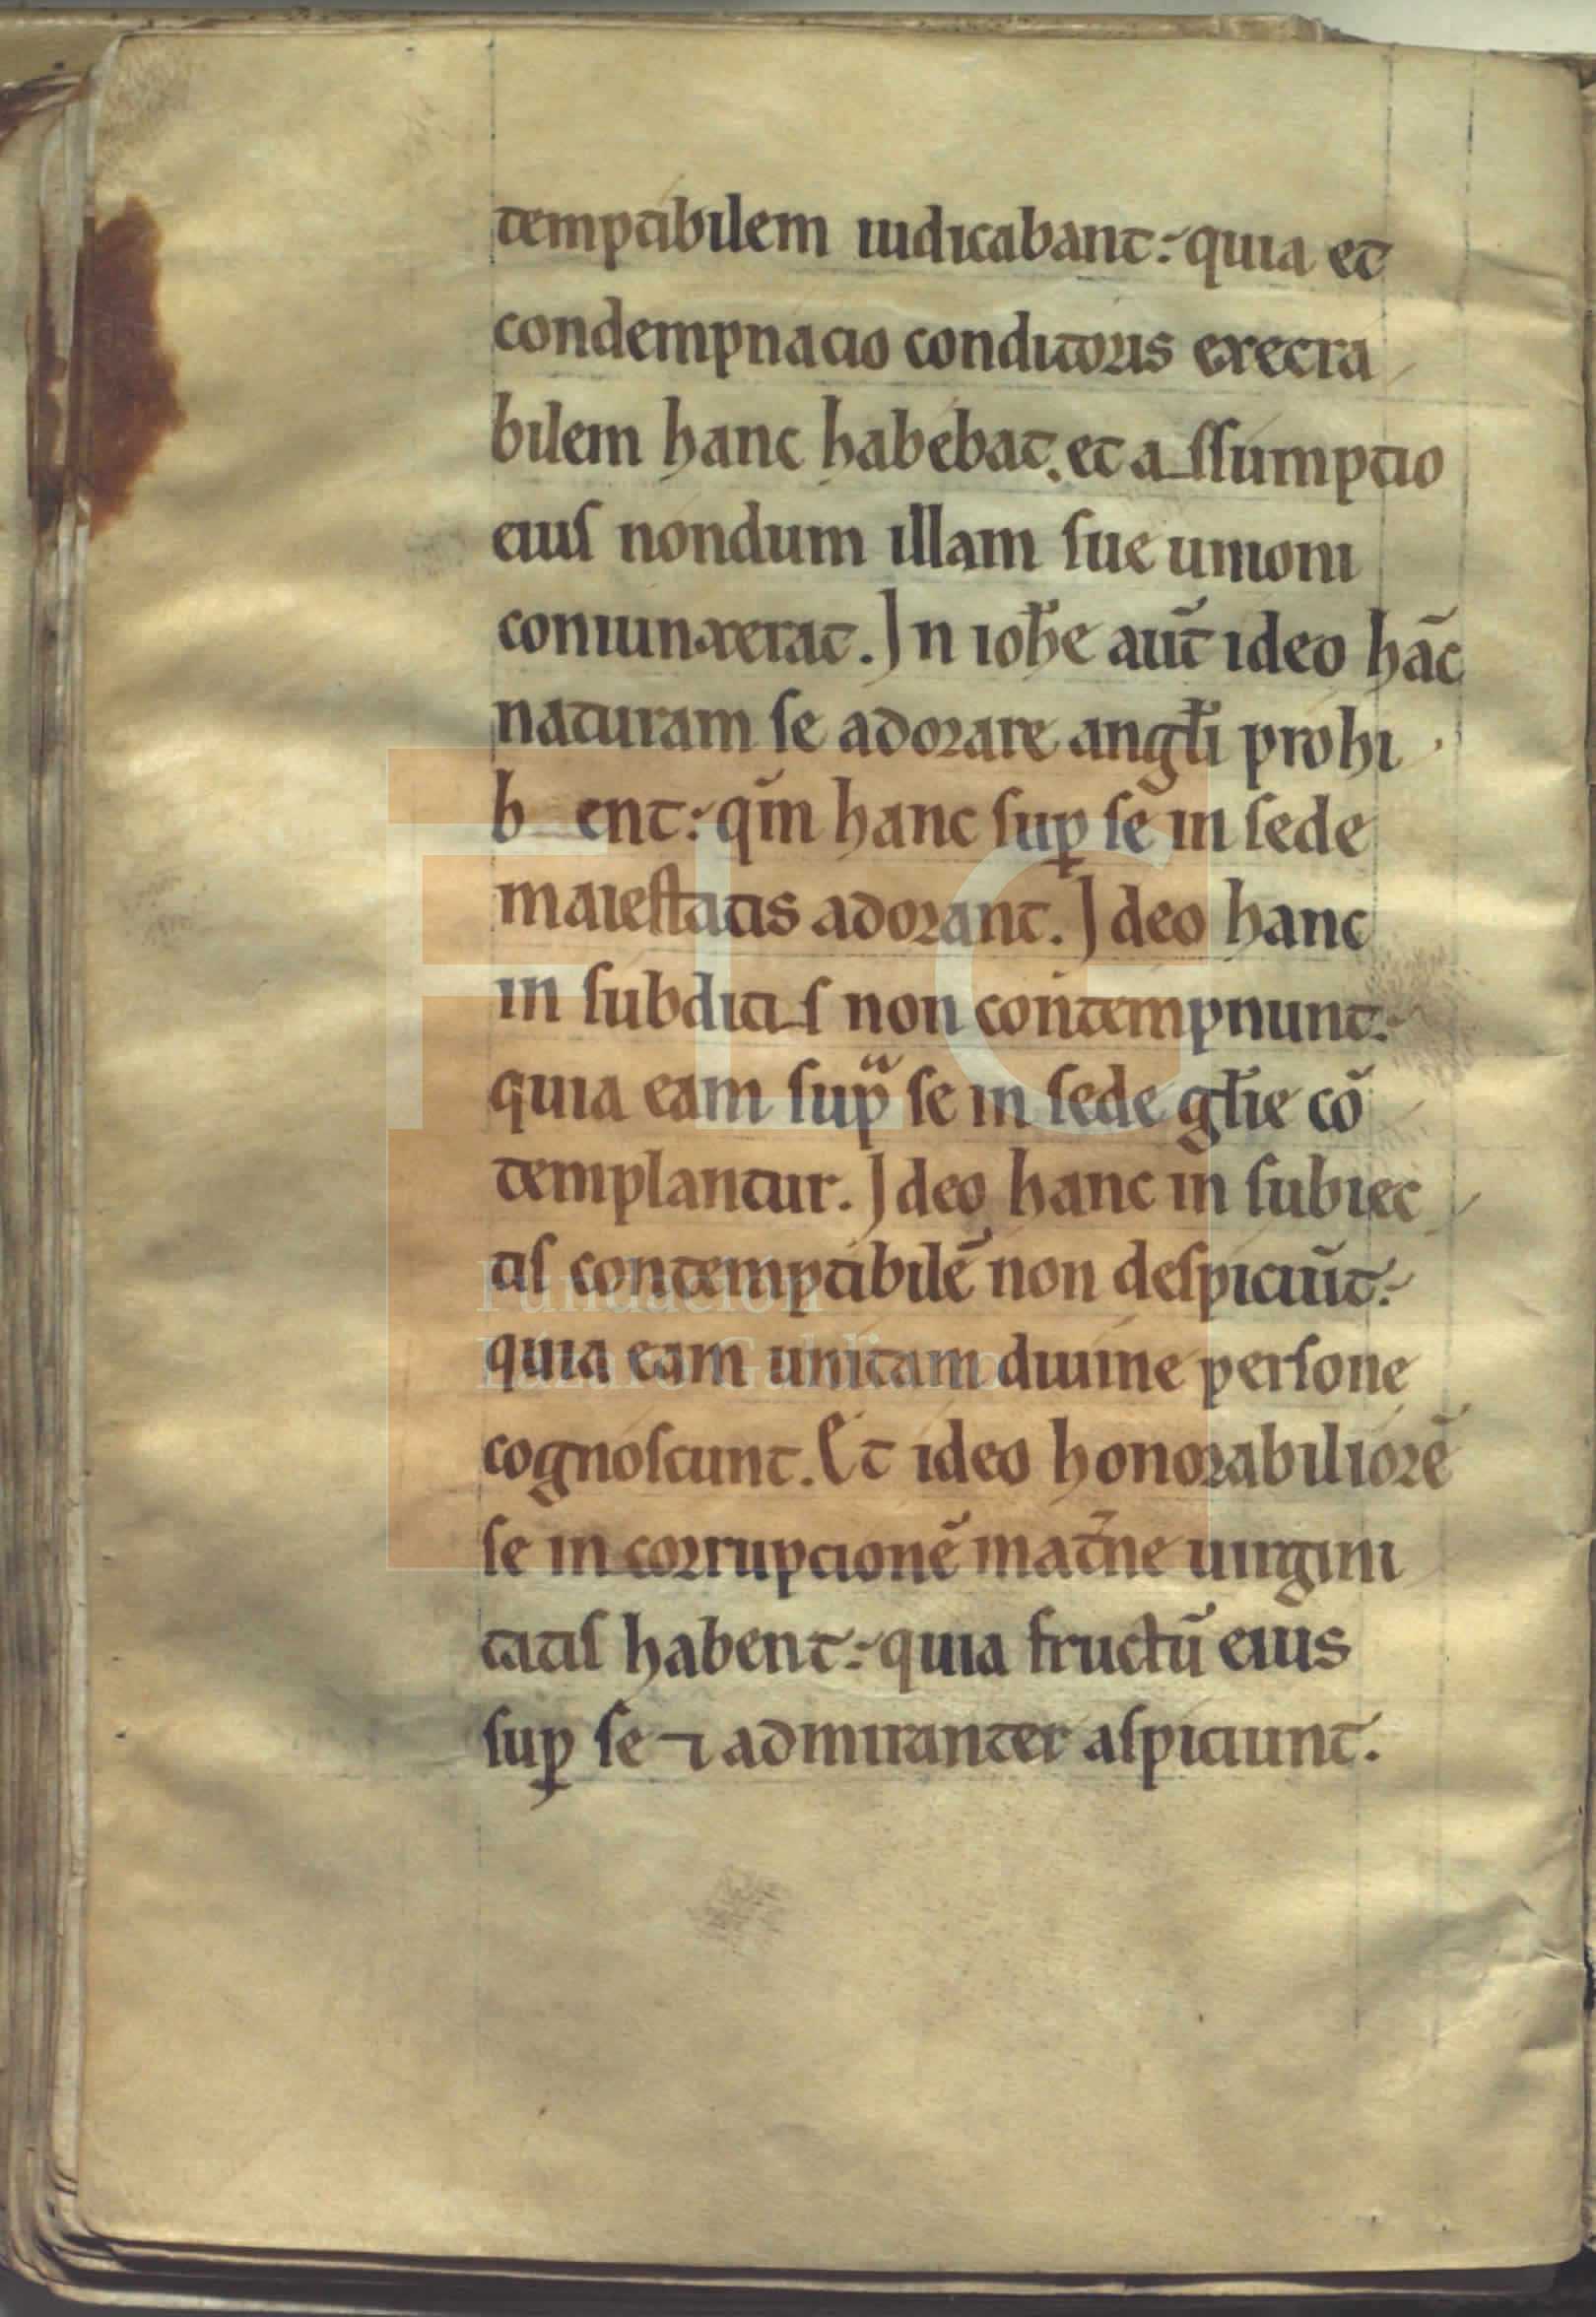 temptibilem iudicabant: quia et
condempnatio conditoris execra
bilem hanc habebat. et a ssumptio
eius nondum illam sue unioni
coniunxerat. In ioħe aut̄ ideo hāc
naturam se adorare angłi prohi
b ent: qm̄ hanc suꝑ se in sede
maiestatis adorant. Ideo hanc
in subditis non contempnunt:
quia eam supᷓ se in sede głie cō
templantur. Ideo hanc in subiec
tis contemptibilē non despiciūt:
quia eam unitam diuine persone
cognoscunt. Et ideo honorabiliorē
se in corrupcionē mat̄ne uirgini
tatis habent: quia fructū eius
suꝑ se ⁊ admiranter aspiciunt.
Fundación
Lázaro Galdiano
FLG